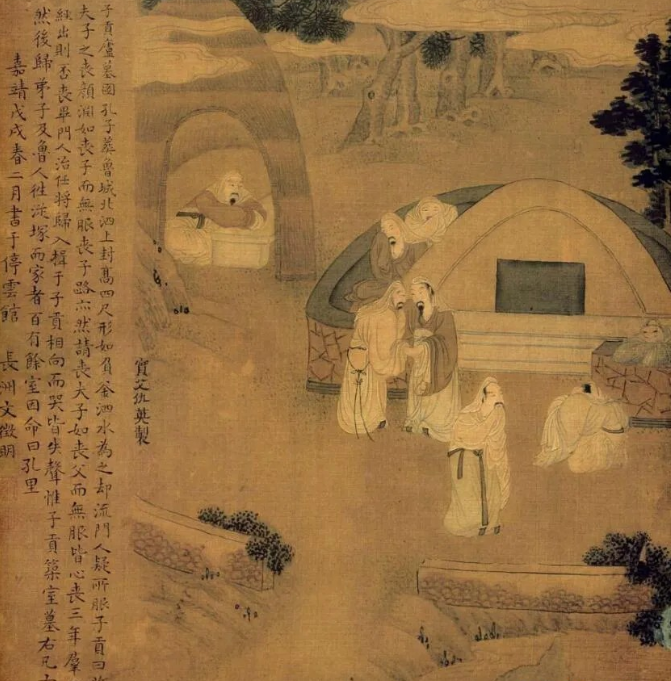 實父仇英製
子貢廬墓圖孔子葬魯城北泗上封髙四尺形如負釜泗水為之却流門人疑所服子貢曰
夫子之喪顏淵如喪子而無服喪子路亦然請喪夫子如喪父而無服皆心喪三年羣
絰出則否喪畢門人治任將歸入揖于子貢相向而哭皆失聲惟子貢築室墓右凡
然後歸弟子及魯人徃從塚而家者百有餘室因命曰孔里
嘉靖戊戌春二月書于停雲館 長洲文徵明